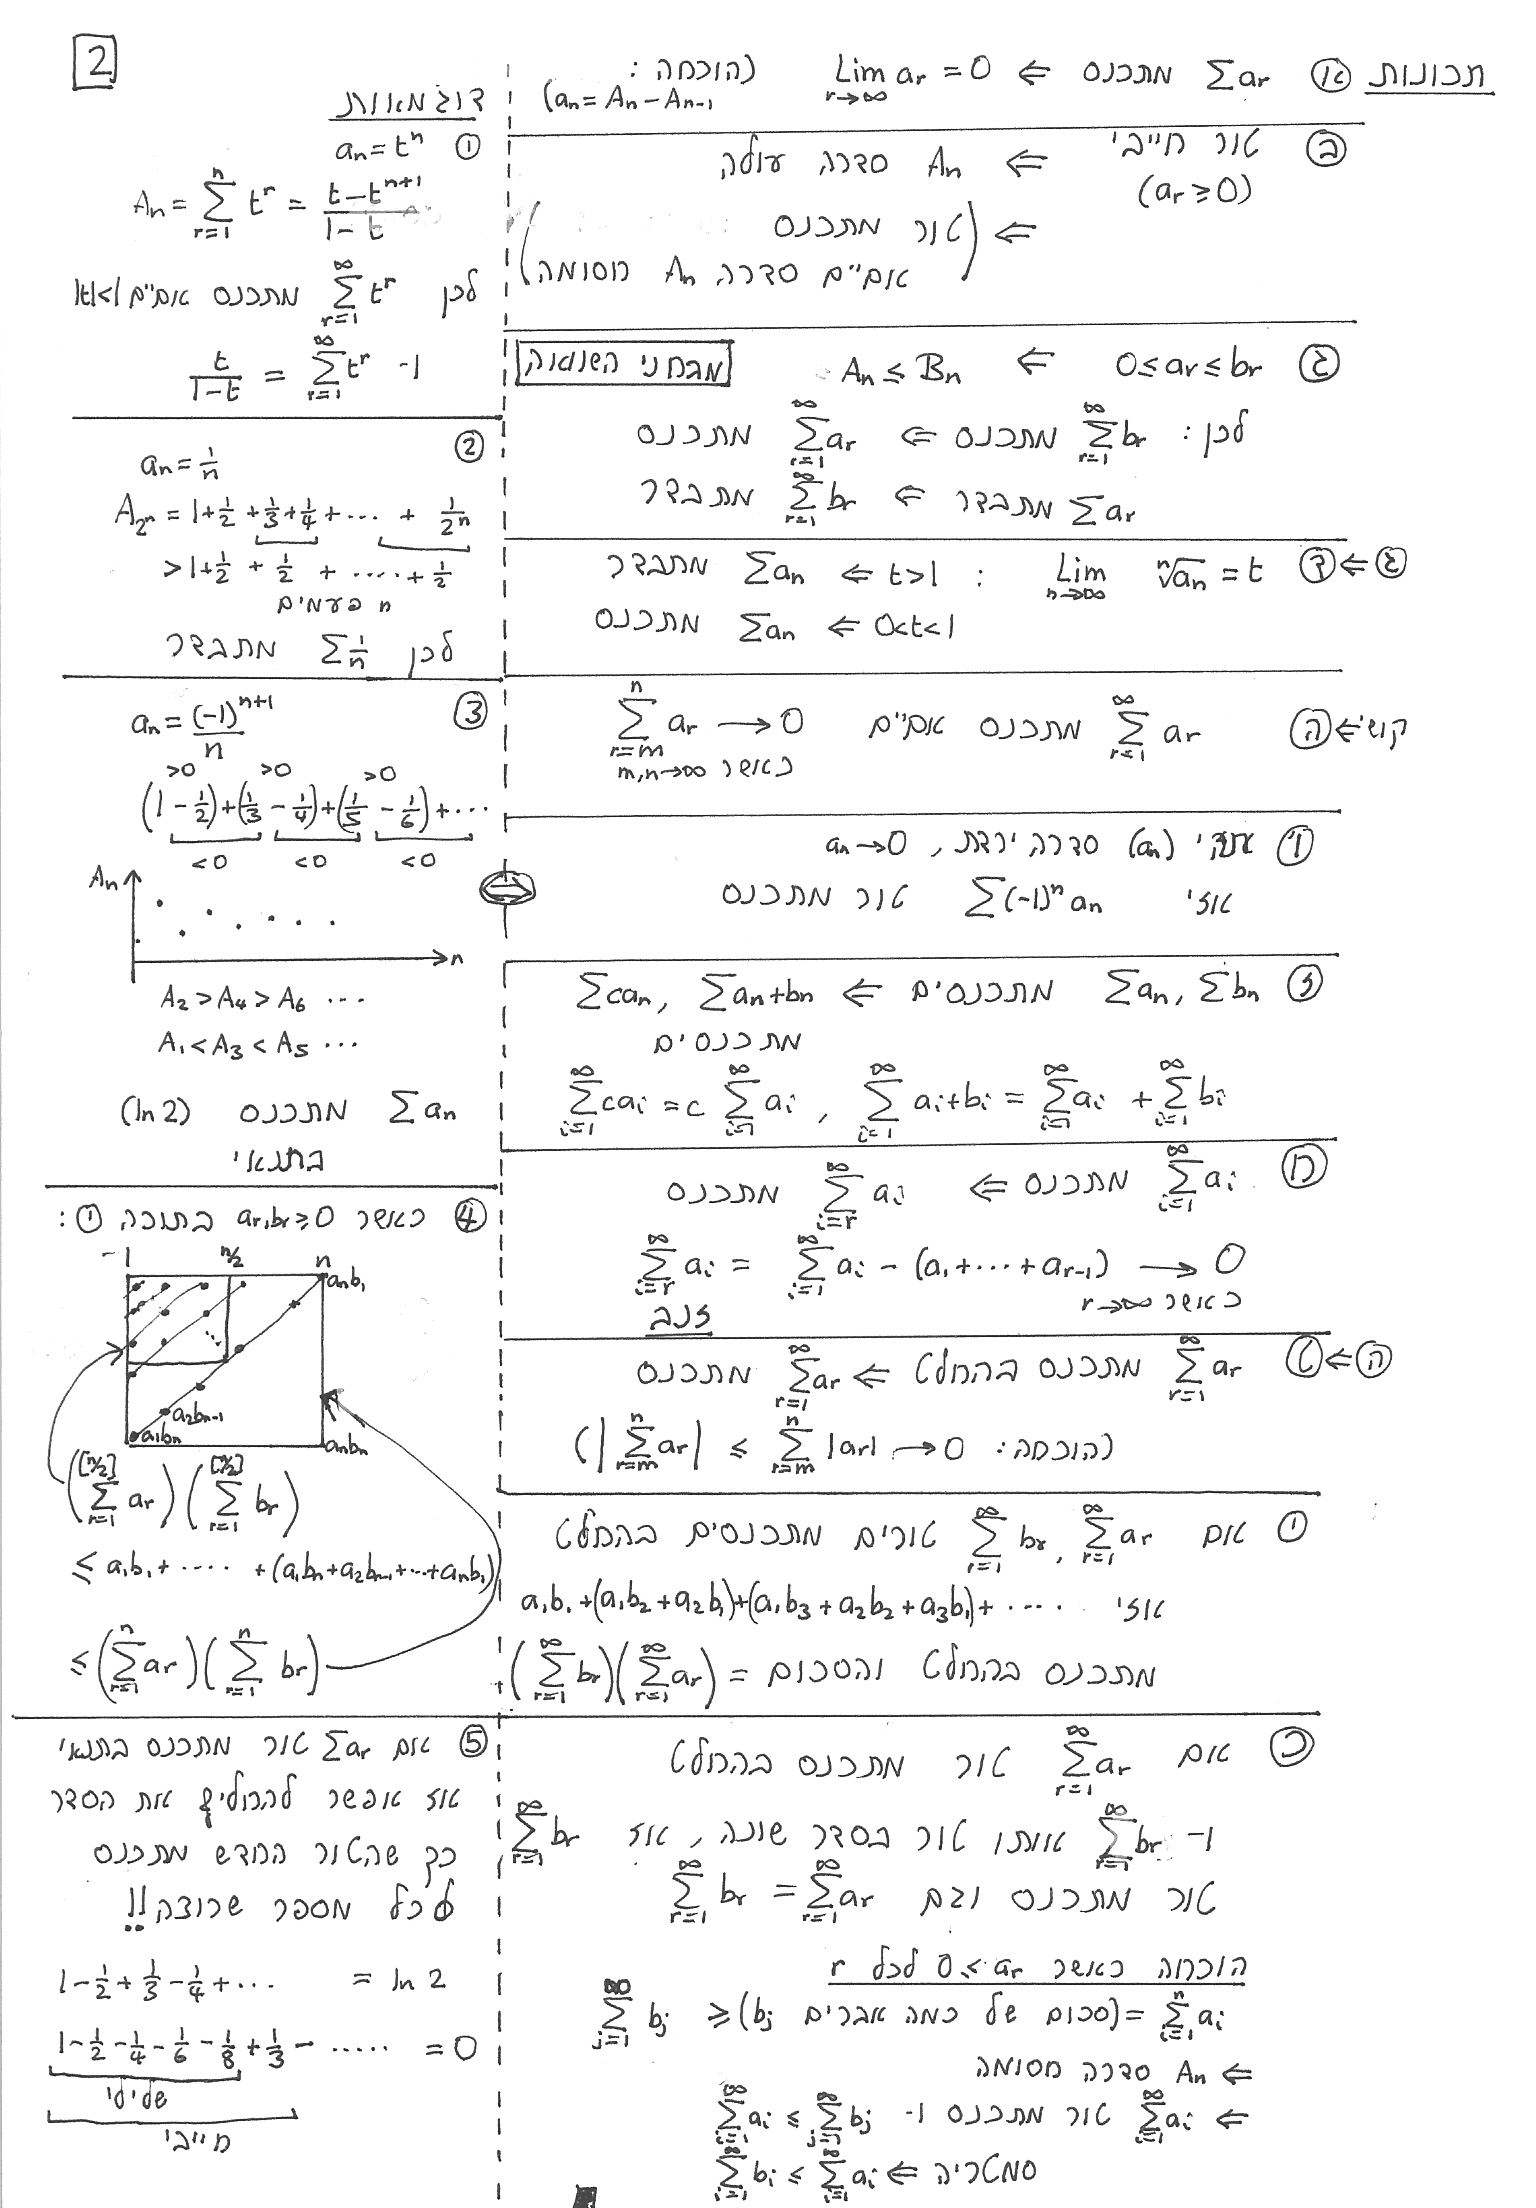 2
תכונות (א) ∑ar מתכנס ⇐ Lim ar = 0 (הוכחה :
r→∞
(an = An − An-1
(ב) טור חיובי ⇐ An סדרה עולה
(ar ≥ 0)
⇐ (טור מתכנס
אם״ם סדרה An חסומה)
(ג) 0 ≤ ar ≤ br ⇐ An ≤ Bn מבחני השוואה
לכן : ∑_{r=1}^{∞} br מתכנס ⇐ ∑_{r=1}^{∞} ar מתכנס
∑ar מתבדר ⇐ ∑_{r=1}^{∞} br מתבדר
(ג)⇐(ד) Lim_{n→∞} ⁿ√an = t : t>1 ⇐ ∑an מתבדר
0<t<1 ⇐ ∑an מתכנס
קושי⇐(ה) ∑_{r=1}^{∞} ar מתכנס אם״ם ∑_{r=m}^{n} ar → 0
כאשר m,n→∞
(ו) (an) סדרה יורדת, an→0
אזי ∑(-1)ⁿ an טור מתכנס
(ז) ∑an, ∑bn מתכנסים ⇐ ∑can, ∑an+bn
מתכנסים
∑_{i=1}^{∞} cai = c ∑_{i=1}^{∞} ai , ∑_{i=1}^{∞} ai+bi = ∑_{i=1}^{∞} ai + ∑_{i=1}^{∞} bi
(ח) ∑_{i=1}^{∞} ai מתכנס ⇐ ∑_{i=r}^{∞} ai מתכנס
∑_{i=r}^{∞} ai = ∑_{i=1}^{∞} ai − (a1+⋯+ar-1) → 0
כאשר r→∞
זנב
(ה)⇐(ט) ∑_{r=1}^{∞} ar מתכנס בהחלט ⇐ ∑_{r=1}^{∞} ar מתכנס
(הוכחה: |∑_{r=m}^{n} ar| ≤ ∑_{r=m}^{n} |ar| → 0)
(י) אם ∑_{r=1}^{∞} ar, ∑_{r=1}^{∞} br טורים מתכנסים בהחלט
אזי a1b1+(a1b2+a2b1)+(a1b3+a2b2+a3b1)+ ....
מתכנס בהחלט והסכום = (∑_{r=1}^{∞} ar)(∑_{r=1}^{∞} br)
(כ) אם ∑_{r=1}^{∞} ar טור מתכנס בהחלט
ו- ∑_{r=1}^{∞} br אותו טור בסדר שונה, אז ∑_{r=1}^{∞} br
טור מתכנס וגם ∑_{r=1}^{∞} ar = ∑_{r=1}^{∞} br
הוכחה כאשר 0 ≤ ar לכל r
∑_{i=1}^{n} ai = (סכום של כמה אברים bj) ≤ ∑_{j=1}^{∞} bj
⇐ An סדרה חסומה
⇐ ∑_{i=1}^{∞} ai טור מתכנס ו- ∑_{i=1}^{∞} ai ≤ ∑_{j=1}^{∞} bj
סמטריה ⇐ ∑_{i=1}^{∞} bi ≤ ∑_{i=1}^{∞} ai
דוגמאות
(1) an = tⁿ
An = ∑_{r=1}^{n} tʳ = (t−tⁿ⁺¹)/(1−t)
לכן ∑_{r=1}^{∞} tʳ מתכנס אם״ם |t|<1
ו- ∑_{r=1}^{∞} tʳ = t/(1−t)
(2)
an = 1/n
A2ⁿ = 1+1/2+1/3+1/4+⋯+ 1/2ⁿ
>1+1/2 + 1/2 + .....+1/2
n פעמים
לכן ∑1/n מתבדר
(3) an = (-1)ⁿ⁺¹/n
>0 >0 >0
(1−1/2)+(1/3−1/4)+(1/5−1/6)+⋯
<0 <0 <0
An
n
A2 > A4 > A6 ⋯
A1 < A3 < A5 ⋯
∑an מתכנס (ln 2)
בתנאי
(4) כאשר ar,br≥0 בתוכה (י) :
-1 n/2 n
anb1
a2bn-1
a1bn anbn
(∑_{r=1}^{[n/2]} ar)(∑_{r=1}^{[n/2]} br)
≤ a1b1+ ..... +(a1bn+a2bn-1+⋯+anb1)
≤ (∑_{r=1}^{n} ar)(∑_{r=1}^{n} br)
(5) אם ∑ar טור מתכנס בתנאי
אז אפשר להחליף את הסדר
כך שהטור החדש מתכנס
לכל מספר שרוצה!!
1−1/2+1/3−1/4+⋯ = ln 2
1−1/2−1/4−1/6−1/8+1/3− ..... = 0
שלילי
חיובי